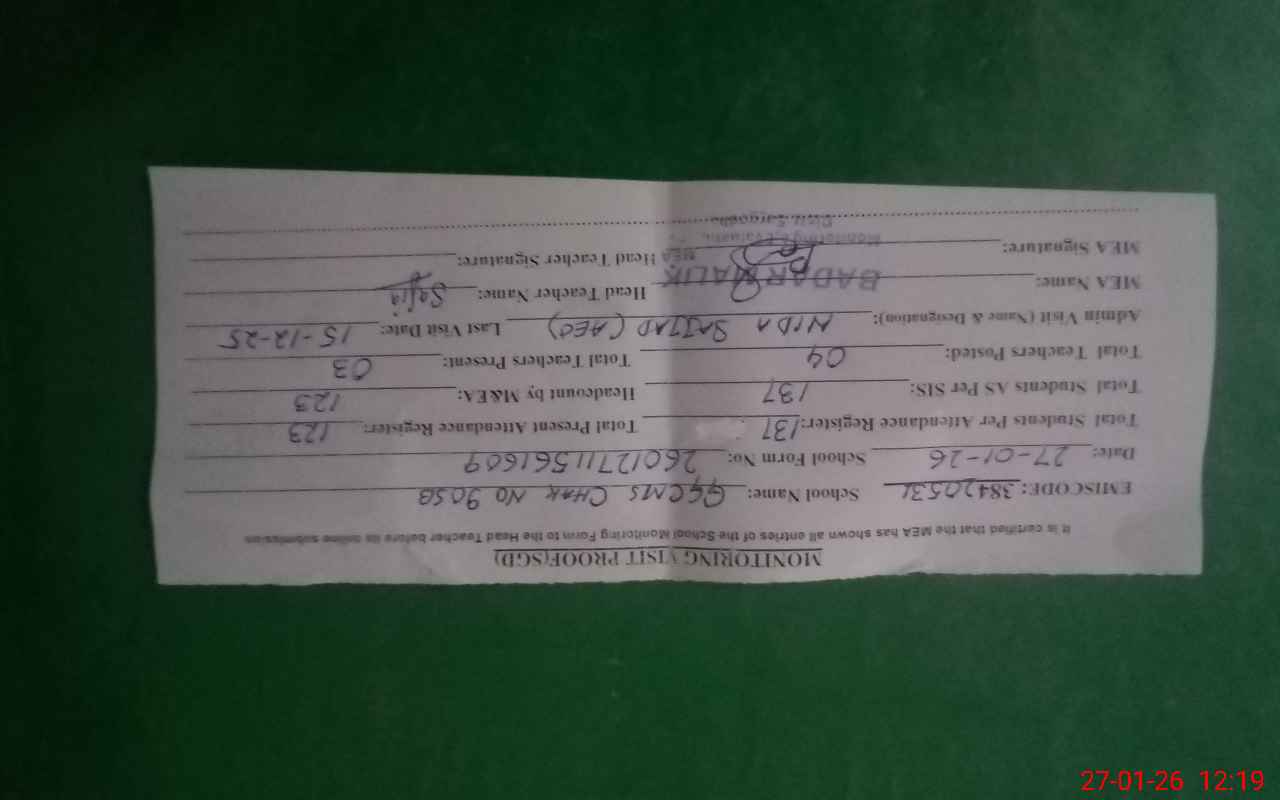 MONITORING VISIT PROOF(SGD)
It is certified that the MEA has shown all entries of the School Monitoring Form to the Head Teacher before its online submission
EMISCODE: 38420531 School Name: GGCMS CHAK NO 90SB
Date: 27-01-26 School Form No: 260127111561609
Total Students Per Attendance Register: 137 Total Present Attendance Register: 123
Total Students AS Per SIS: 137 Headcount by M&EA: 123
Total Teachers Posted: 04 Total Teachers Present: 03
Admin Visit (Name & Designation): NIDA SAJJAD (AEO) Last Visit Date: 15-12-25
MEA Name: BADAR MALIK Head Teacher Name: Safia
MEA Signature: MEA Head Teacher Signature:
Monitoring
Distt. Sargodha
27-01-26 12:19